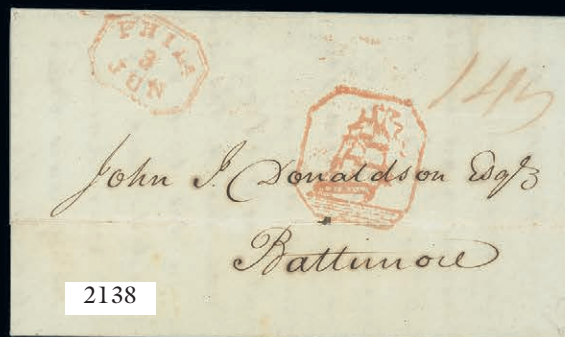 PHILA
8
JUN
John J. Donaldson Esqr
Baltimore
2138